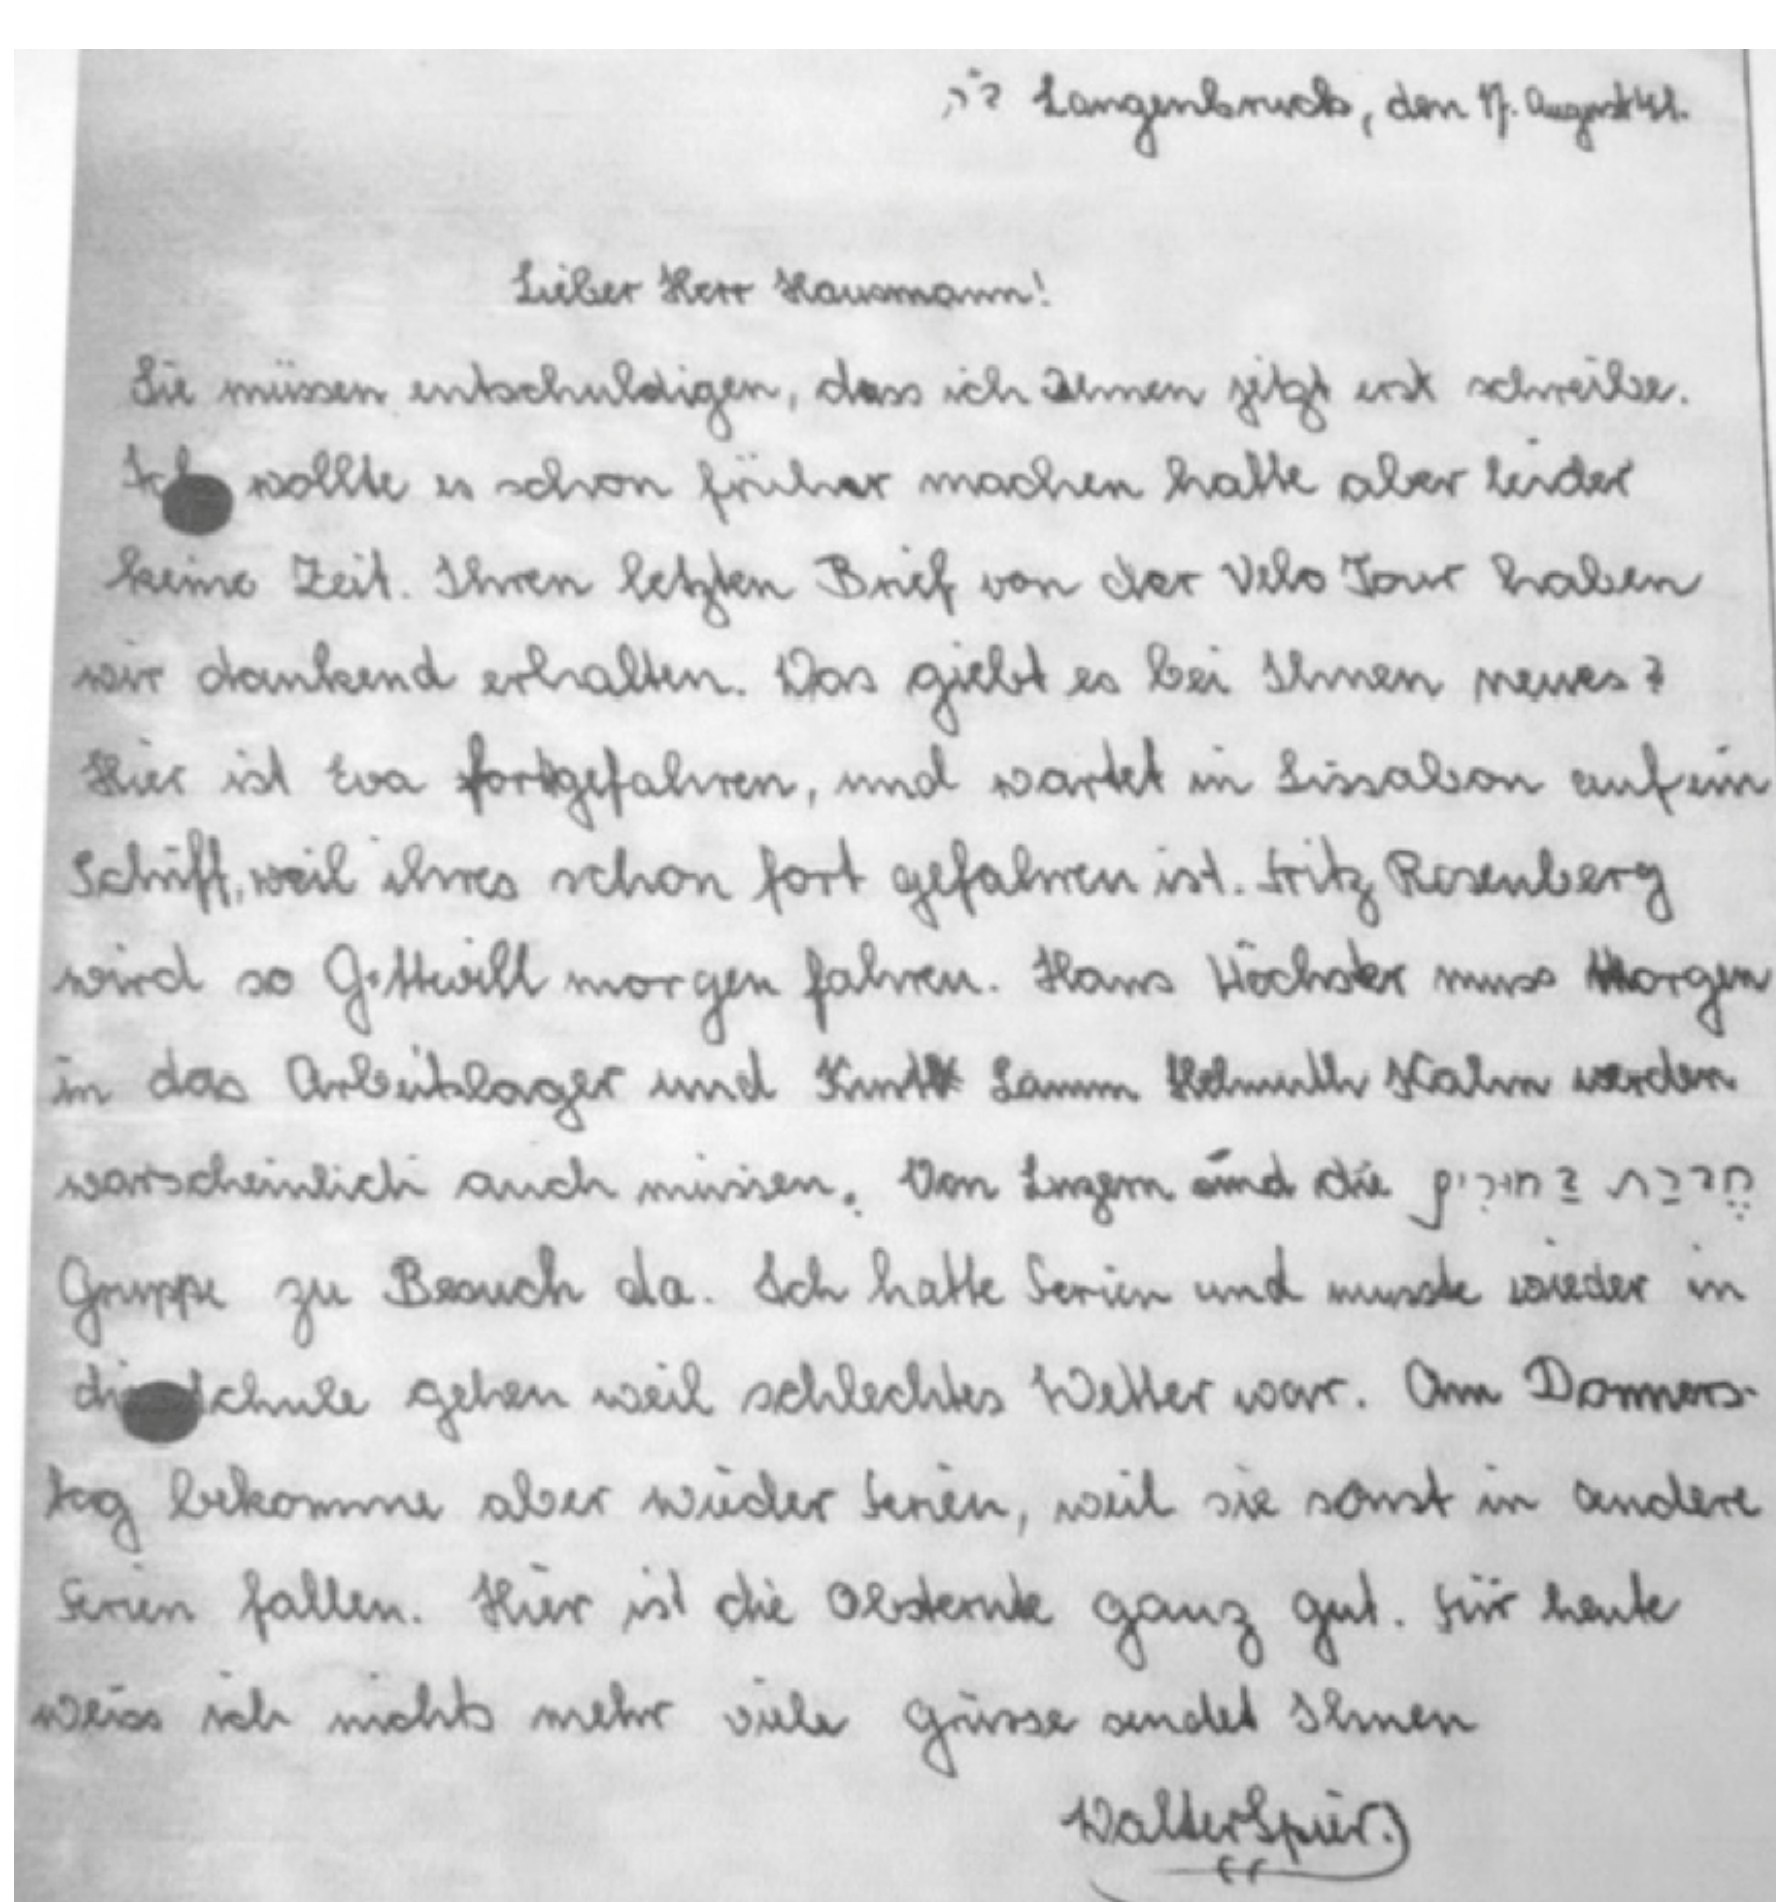 ב״ה Langenbruck, den 17. August 41.
Lieber Herr Hausmann!
Sie müssen entschuldigen, dass ich Ihnen jetzt erst schreibe.
Ich wollte es schon früher machen hatte aber leider
keine Zeit. Ihren letzten Brief von der Velo Tour haben
wir dankend erhalten. Was giebt es bei Ihnen neues?
Hier ist Eva fortgefahren, und wartet in Lissabon auf ein
Schiff, weil ihres schon fort gefahren ist. Fritz Rosenberg
wird so Gottwill morgen fahren. Hans Höchster muss Morgen
in das Arbeitslager und Kurt Lamm Helmuth Kahn werden
warscheinlich auch müssen. Von Luzern sind die חֶבְרַת בַּחוּרִים
Gruppe zu Besuch da. Ich hatte Ferien und musste wieder in
die Schule gehen weil schlechtes Wetter war. Am Donners-
tag bekomme aber wieder Ferien, weil sie sonst in andere
Ferien fallen. Hier ist die Obsternte ganz gut. Für heute
weiss ich nichts mehr viele Grüsse sendet Ihnen
Walter Spier.